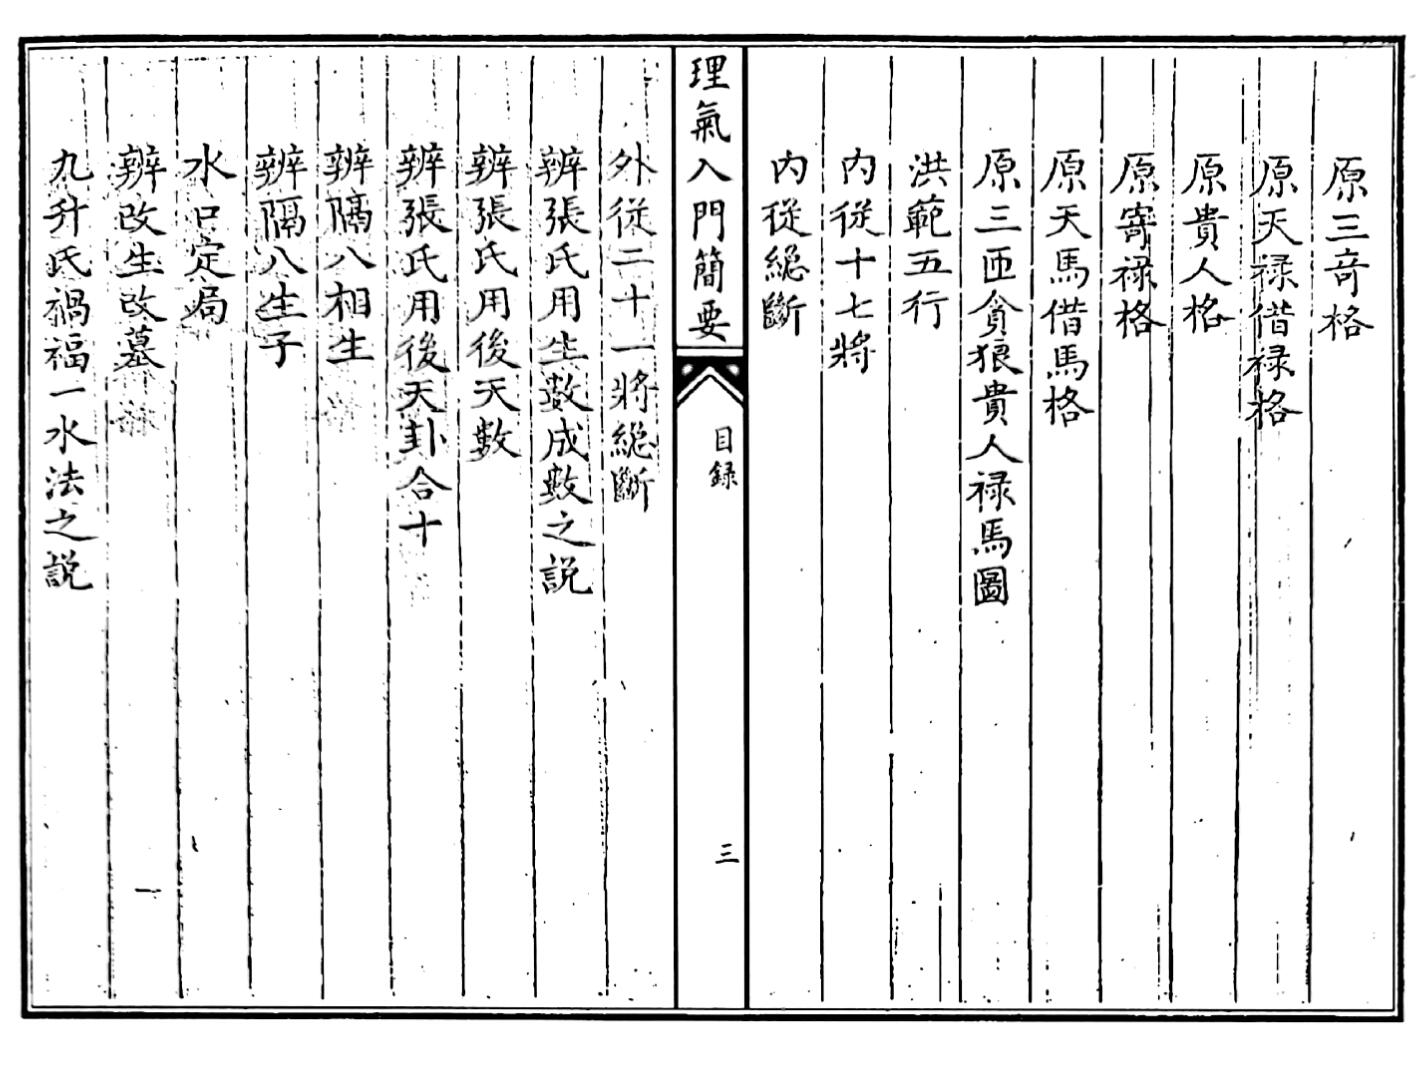 原三竒格
原天禄借禄格
原貴人格
原寄禄格
原天馬借馬格
原三匝貪狼貴人禄馬圖
洪範五行
內從十七將
內從總斷
理氣入門簡要
目録
三
外從二十一將總斷
辨張氏用生數成數之説
辨張氏用後天數
辨張氏用後天卦合十
辨隔八相生
辨隔八生子
水口定局
辨改生改墓
九升氏禍福一水法之説